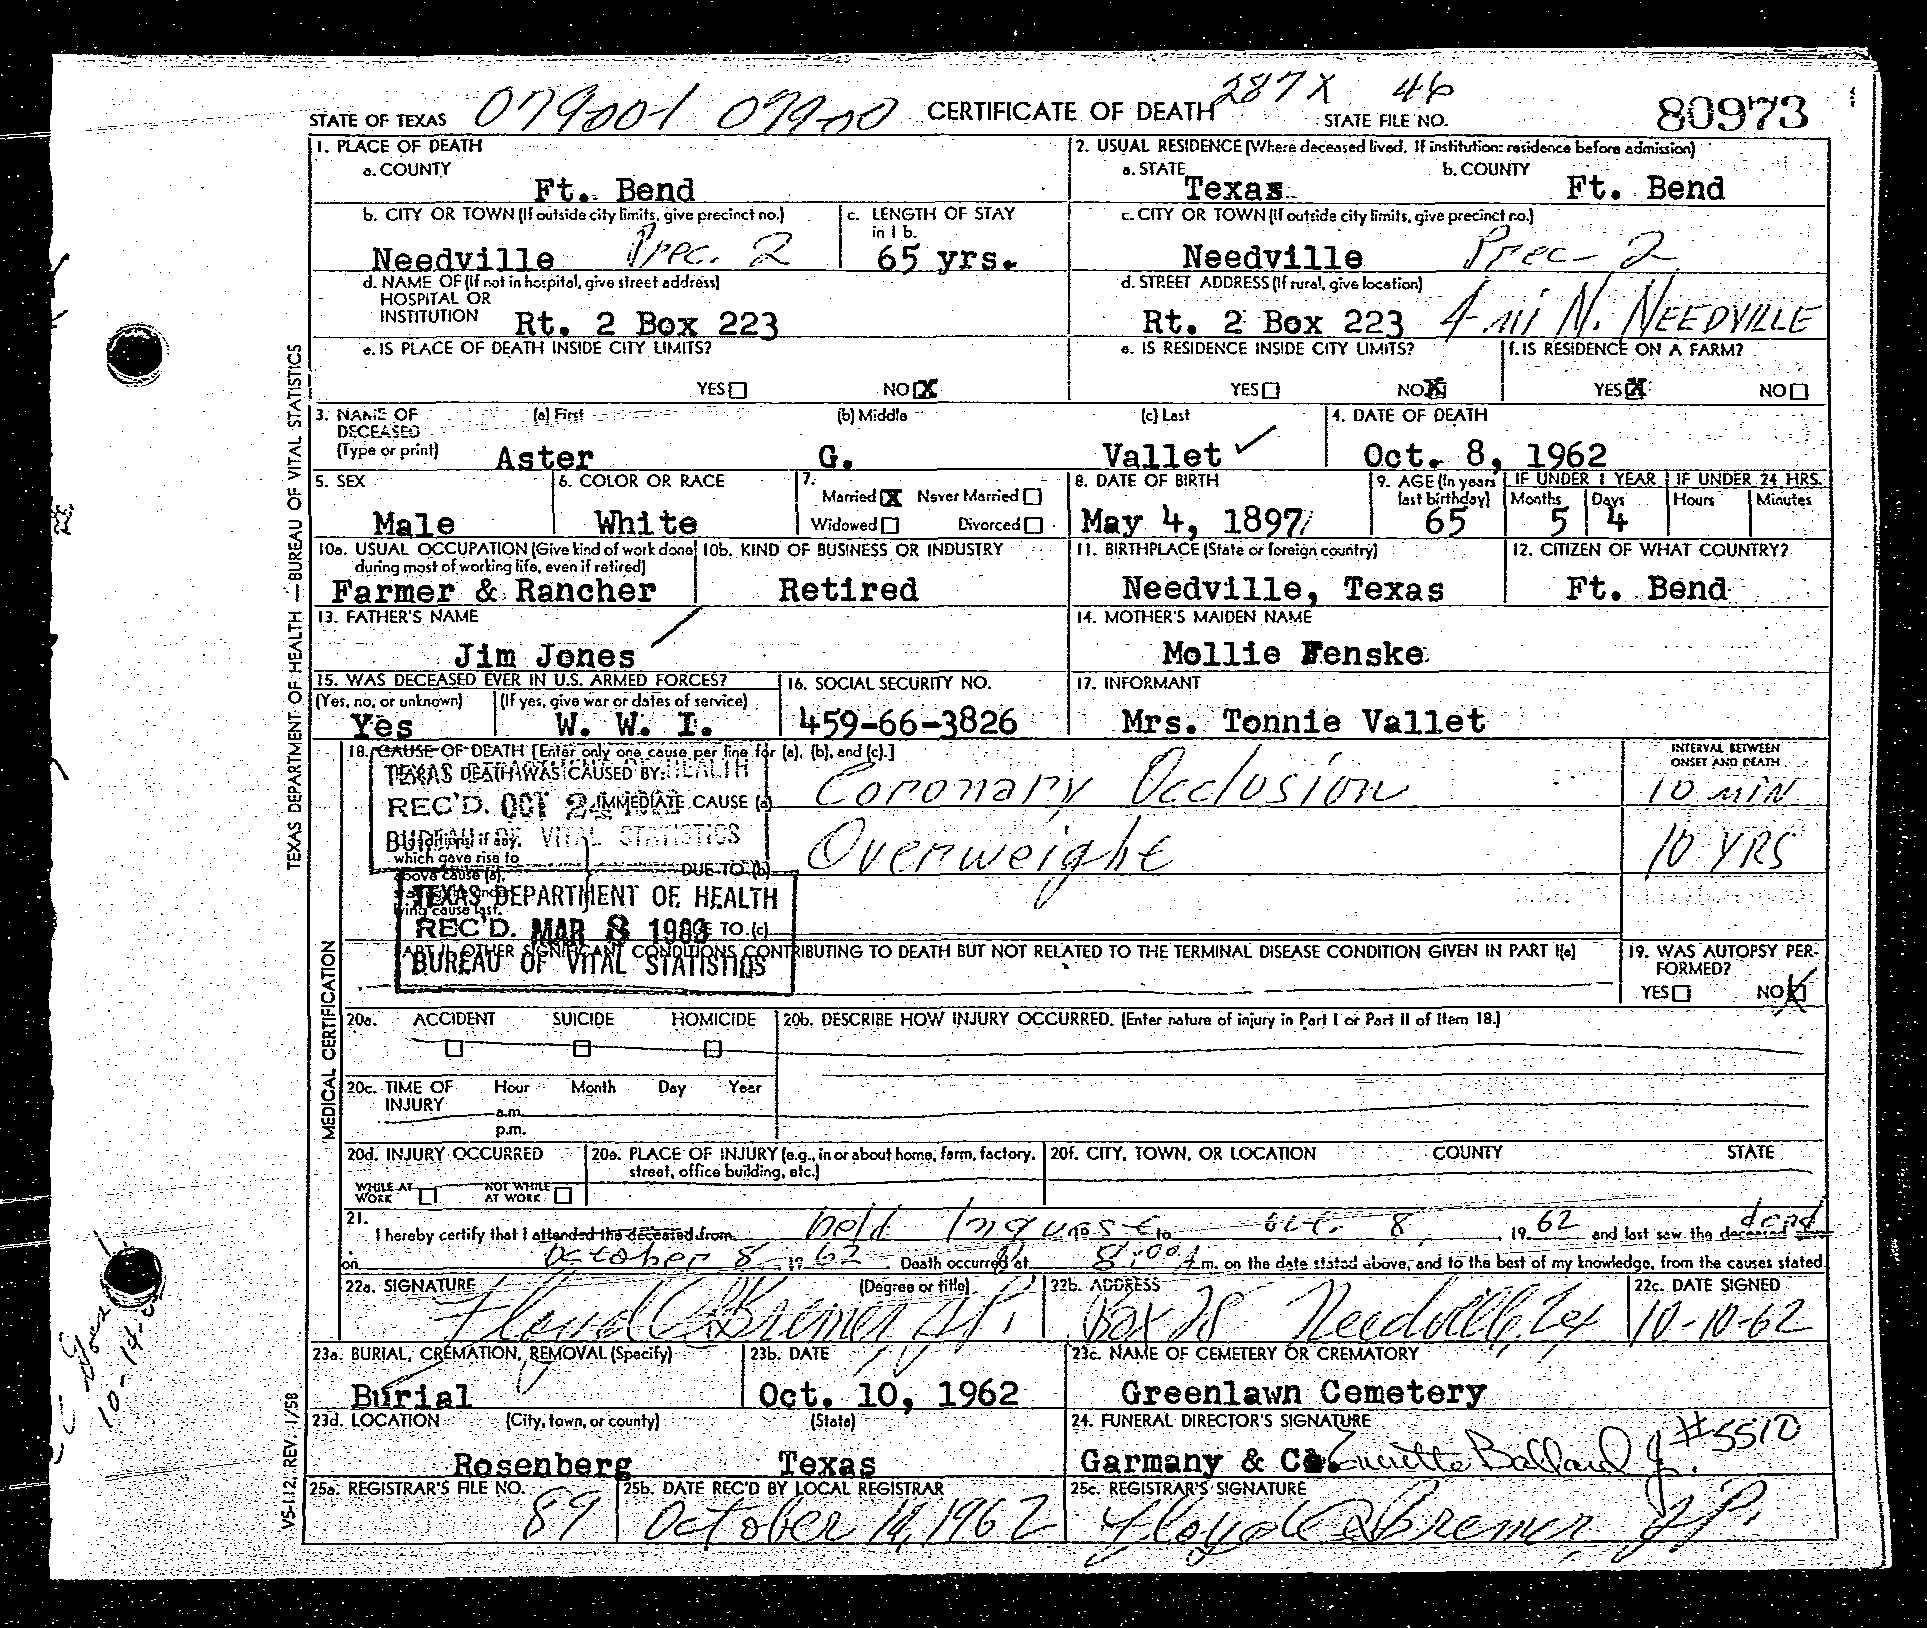 STATE OF TEXAS 079001 07900 CERTIFICATE OF DEATH 287X 46 STATE FILE NO. 80973
1. PLACE OF DEATH
a. COUNTY
Ft. Bend
2. USUAL RESIDENCE (Where deceased lived. If institution: residence before admission)
a. STATE b. COUNTY
Texas Ft. Bend
b. CITY OR TOWN (If outside city limits, give precinct no.)
Needville Prec. 2
c. LENGTH OF STAY
in 1 b.
65 yrs.
c. CITY OR TOWN (If outside city limits, give precinct no.)
Needville Prec- 2
d. NAME OF (If not in hospital, give street address)
HOSPITAL OR
INSTITUTION Rt. 2 Box 223
d. STREET ADDRESS (If rural, give location)
Rt. 2 Box 223 4 mi N. NEEDVILLE
e. IS PLACE OF DEATH INSIDE CITY LIMITS?
YES NO X
e. IS RESIDENCE INSIDE CITY LIMITS?
YES NO X
f. IS RESIDENCE ON A FARM?
YES X NO
3. NAME OF (a) First (b) Middle (c) Last
DECEASED
(Type or print) Aster G. Vallet
4. DATE OF DEATH
Oct. 8, 1962
5. SEX
Male
6. COLOR OR RACE
White
7.
Married X Never Married
Widowed Divorced
8. DATE OF BIRTH
May 4, 1897
9. AGE (In years
last birthday)
65
IF UNDER 1 YEAR IF UNDER 24 HRS.
Months Days Hours Minutes
5 4
10a. USUAL OCCUPATION (Give kind of work done
during most of working life, even if retired)
Farmer & Rancher
10b. KIND OF BUSINESS OR INDUSTRY
Retired
11. BIRTHPLACE (State or foreign country)
Needville, Texas
12. CITIZEN OF WHAT COUNTRY?
Ft. Bend
13. FATHER'S NAME
Jim Jones
14. MOTHER'S MAIDEN NAME
Mollie Fenske
15. WAS DECEASED EVER IN U.S. ARMED FORCES?
(Yes, no, or unknown) (If yes, give war or dates of service)
Yes W. W. I.
16. SOCIAL SECURITY NO.
459-66-3826
17. INFORMANT
Mrs. Tonnie Vallet
18. CAUSE OF DEATH [Enter only one cause per line for (a), (b), and (c).]
INTERVAL BETWEEN
ONSET AND DEATH
DEATH WAS CAUSED BY:
IMMEDIATE CAUSE (a) Coronary Occlusion 10 MIN
which gave rise to
above cause (a),
DUE TO (b) Overweight 10 YRS
lying cause last.
TO (c)
TEXAS DEPARTMENT OF HEALTH
REC'D. OCT 24
BUREAU OF VITAL STATISTICS
TEXAS DEPARTMENT OF HEALTH
REC'D. MAR 8 1963
BUREAU OF VITAL STATISTICS
PART II. OTHER SIGNIFICANT CONDITIONS CONTRIBUTING TO DEATH BUT NOT RELATED TO THE TERMINAL DISEASE CONDITION GIVEN IN PART I(a)
19. WAS AUTOPSY PER-
FORMED?
YES NO X
20a. ACCIDENT SUICIDE HOMICIDE
20b. DESCRIBE HOW INJURY OCCURRED. (Enter nature of injury in Part I or Part II of Item 18.)
20c. TIME OF Hour Month Day Year
INJURY
a.m.
p.m.
20d. INJURY OCCURRED
WHILE AT
WORK
NOT WHILE
AT WORK
20e. PLACE OF INJURY (e.g., in or about home, farm, factory,
street, office building, etc.)
20f. CITY, TOWN, OR LOCATION COUNTY STATE
21.
I hereby certify that I attended the deceased from held Inquest to Oct. 8, 1962 and last saw the deceased dead
on October 8 1962. Death occurred at 8:00 A m. on the date stated above, and to the best of my knowledge, from the causes stated.
22a. SIGNATURE (Degree or title)
Floyd Q Bremer JP.
22b. ADDRESS
Box 28 Needville, Tex
22c. DATE SIGNED
10-10-62
23a. BURIAL, CREMATION, REMOVAL (Specify)
Burial
23b. DATE
Oct. 10, 1962
23c. NAME OF CEMETERY OR CREMATORY
Greenlawn Cemetery
23d. LOCATION (City, town, or county) (State)
Rosenberg Texas
24. FUNERAL DIRECTOR'S SIGNATURE
Garmany & Co. Ballard Jr. #5510
25a. REGISTRAR'S FILE NO.
89
25b. DATE REC'D BY LOCAL REGISTRAR
October 14, 1962
25c. REGISTRAR'S SIGNATURE
Floyd Q Bremer JP.
TEXAS DEPARTMENT OF HEALTH — BUREAU OF VITAL STATISTICS
MEDICAL CERTIFICATION
VS-112, REV. 1/58